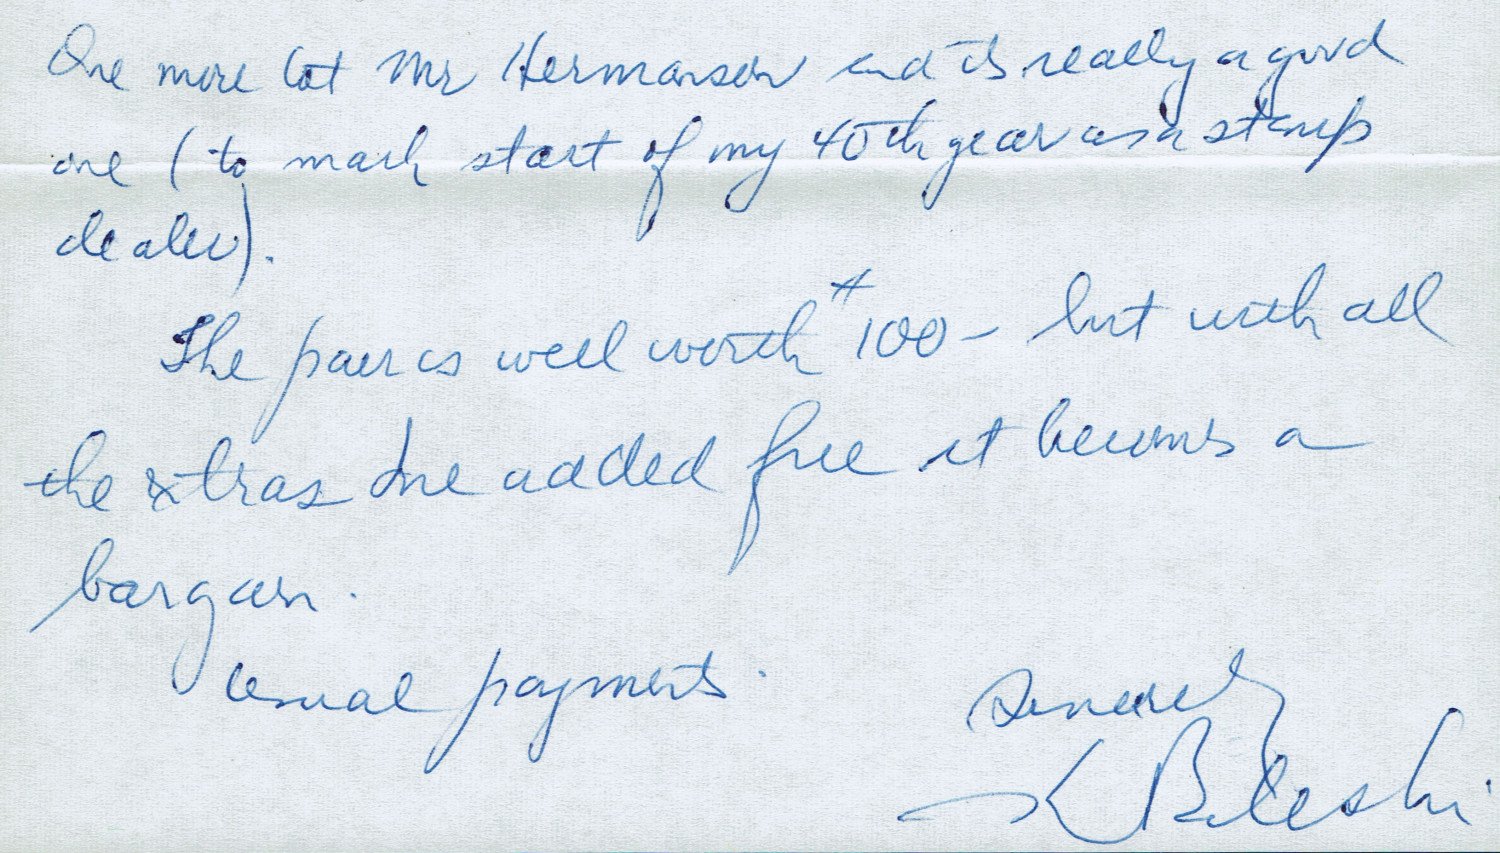 One more lot Mr Hermanson and its really a good
one (to mark start of my 40th year as a stamp
dealer).
The pair is well worth $100- but with all
the extras Ive added free it becomes a
bargain.
Usual payments.
Sincerely
K Bileski